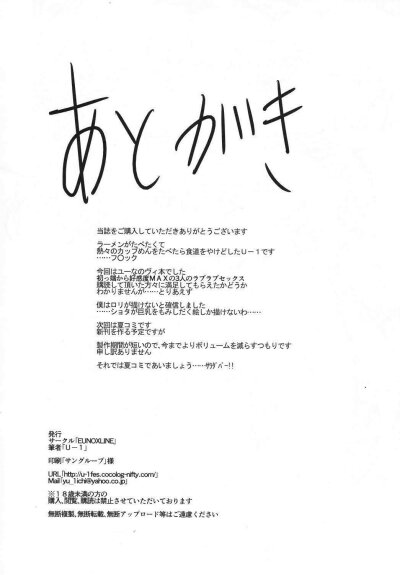 あとがき
当誌をご購入していただきありがとうございます
ラーメンがたべたくて
熱々のカップめんをたべたら食道をやけどしたU－1です
……フ○ック
今回はユーなのヴィ本でした
初っ端から好感度MAXの3人のラブラブセックス
購読して頂いた方々に満足してもらえたかどうか
わかりませんが……とりあえず
僕はロリが描けないと確信しました
……ショタが巨乳をもみしだく絵しか描けないわ……
次回は夏コミです
新刊を作る予定ですが
製作期間が短いので、今までよりボリュームを減らすつもりです
申し訳ありません
それでは夏コミであいましょう……ｻﾗﾀﾞﾊﾞｰ!!
発行
サークル「EUNOXLINE」
筆者「U－1」
印刷「サングループ」様
URL「http://u-1fes.cocolog-nifty.com/」
Mail「yu_1ichi@yahoo.co.jp」
※18歳未満の方の
購入、閲覧、購読は禁止させていただいております
無断複製、無断転載、無断アップロード等はご遠慮ください